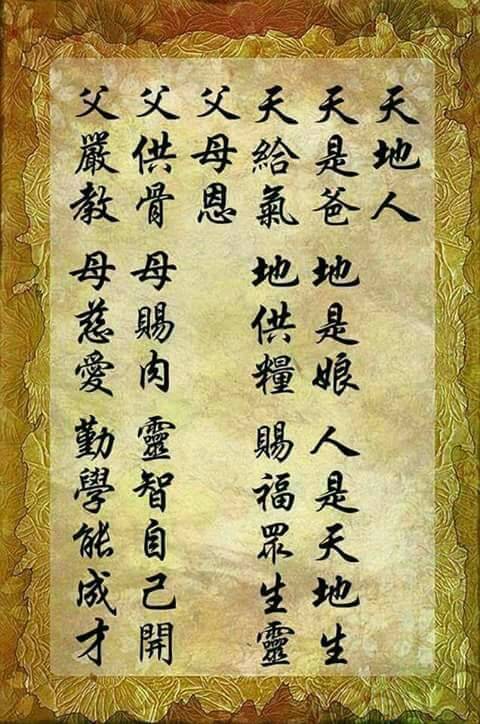 天地人
天是爸 地是娘 人是天地生
天給氣 地供糧 賜福眾生靈
父母恩
父供骨 母賜肉 靈智自己開
父嚴教 母慈愛 勤學能成才